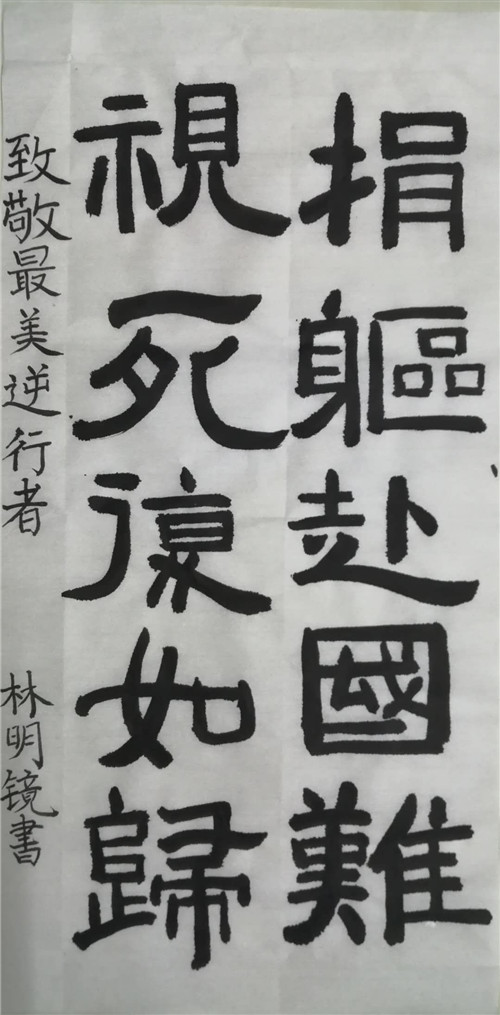 捐軀赴國難
視死復如歸
致敬最美逆行者 林明镜書